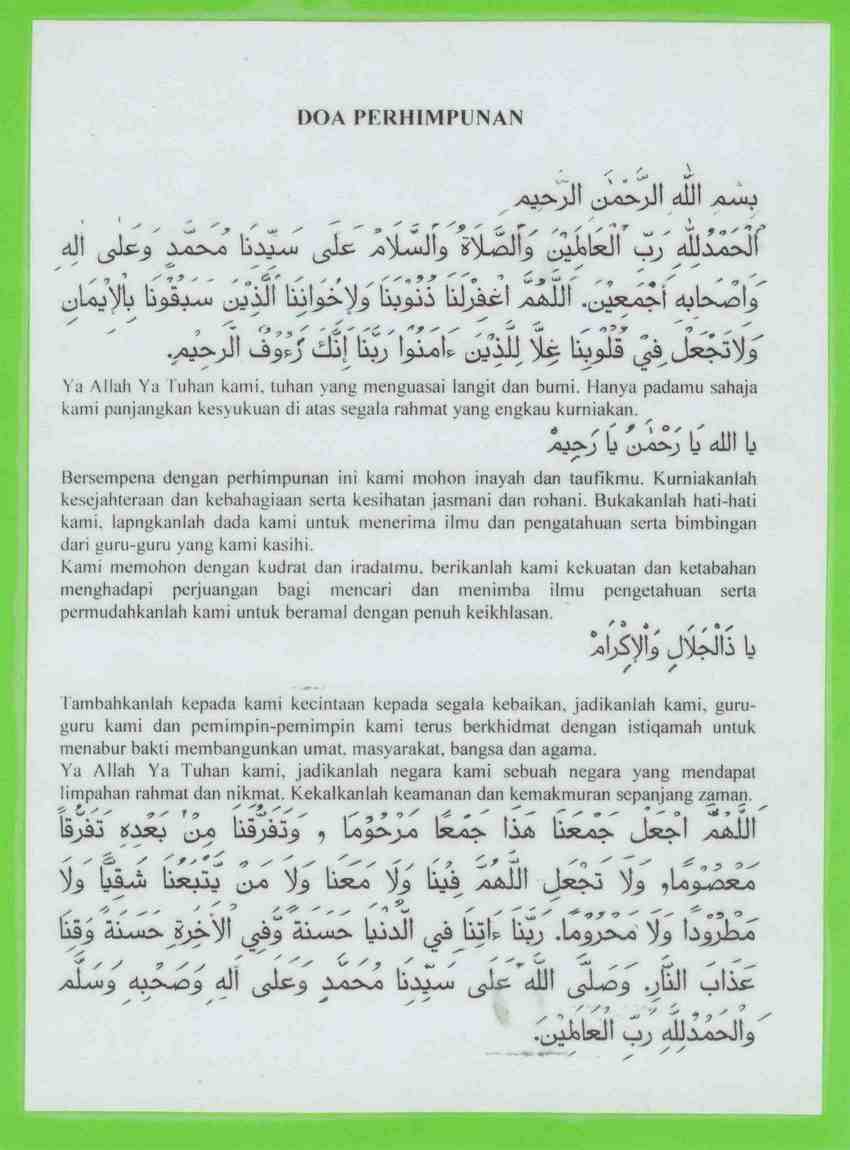 DOA PERHIMPUNAN
بِسْمِ اللّٰهِ الرَّحْمٰنِ الرَّحِيمِ
اَلْحَمْدُلِلّٰهِ رَبِّ الْعَالَمِيْنَ وَالصَّلَاةُ وَالسَّلَامُ عَلَى سَيِّدِنَا مُحَمَّدٍ وَعَلَى اٰلِهِ
وَاَصْحَابِهِ اَجْمَعِيْنَ. اَللّٰهُمَّ اغْفِرْلَنَا ذُنُوْبَنَا وَلِاِخْوَانِنَا الَّذِيْنَ سَبَقُوْنَا بِالْاِيْمَانِ
وَلَاتَجْعَلْ فِيْ قُلُوْبِنَا غِلًّا لِلَّذِيْنَ ءَامَنُوْا رَبَّنَا إِنَّكَ رَءُوْفٌ الرَّحِيْمِ.
Ya Allah Ya Tuhan kami, tuhan yang menguasai langit dan bumi. Hanya padamu sahaja
kami panjangkan kesyukuan di atas segala rahmat yang engkau kurniakan.
يا الله يَا رَحْمٰنُ يَا رَحِيمْ
Bersempena dengan perhimpunan ini kami mohon inayah dan taufikmu. Kurniakanlah
kesejahteraan dan kebahagiaan serta kesihatan jasmani dan rohani. Bukakanlah hati-hati
kami, lapngkanlah dada kami untuk menerima ilmu dan pengatahuan serta bimbingan
dari guru-guru yang kami kasihi.
Kami memohon dengan kudrat dan iradatmu, berikanlah kami kekuatan dan ketabahan
menghadapi perjuangan bagi mencari dan menimba ilmu pengetahuan serta
permudahkanlah kami untuk beramal dengan penuh keikhlasan.
يا ذَالْجَلَالِ وَالْاِكْرَامْ
Tambahkanlah kepada kami kecintaan kepada segala kebaikan, jadikanlah kami, guru-
guru kami dan pemimpin-pemimpin kami terus berkhidmat dengan istiqamah untuk
menabur bakti membangunkan umat, masyarakat, bangsa dan agama.
Ya Allah Ya Tuhan kami, jadikanlah negara kami sebuah negara yang mendapat
limpahan rahmat dan nikmat. Kekalkanlah keamanan dan kemakmuran sepanjang zaman.
اَللّٰهُمَّ اجْعَلْ جَمْعَنَا هَذَا جَمْعًا مَرْحُوْمًا , وَتَفَرُّقَنَا مِنْ بَعْدِهِ تَفَرُّقاً
مَعْصُوْمًا, وَلَا تَجْعَلِ اللّٰهُمَّ فِيْنَا وَلَا مَعَنَا وَلَا مَنْ يَتْبَعُنَا شَقِيًّا وَلَا
مَطْرُوْداً وَلَا مَحْرُوْمًا. رَبَّنَا ءَاتِنَا فِي الدُّنْيَا حَسَنَةً وَّفِي الْاٰخِرَةِ حَسَنَةً وَقِنَا
عَذَابَ النَّارِ. وَصَلَّى اللّٰهُ عَلَى سَيِّدِنَا مُحَمَّدٍ وَعَلَى اٰلِهِ وَصَحْبِهِ وَسَلَّمَ
وَالْحَمْدُلِلّٰهِ رَبِّ الْعَالَمِيْنَ.